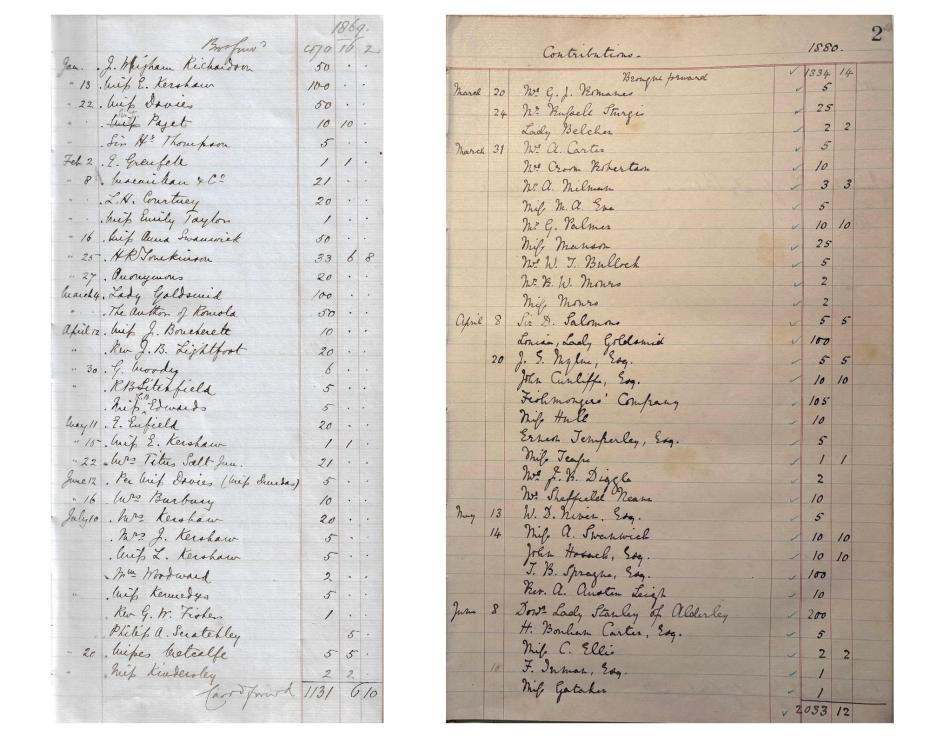 1869.
Bro forwd 670 16 2
Jan. J. Wigham Richardson 50 . .
" 13 Miss E. Kershaw 100 . .
" 22 Miss Davies 50 . .
" . Paget 10 10 .
Sir Hy Thompson 5 . .
Feb 2. E. Grenfell 1 1 .
" 8. Macmillan & Co 21 . .
L. H. Courtney 20 . .
Miss Emily Taylor 1 . .
" 16 Miss Anna Swanwick 50 . .
" 25 H R Tomkinson 33 6 8
" 27 Anonymous 20 . .
March 4. Lady Goldsmid 100 . .
" The Author of Romola 50 . .
April 12 Miss J. Boucherett 10 . .
Rev J. B. Lightfoot 20 . .
" 30 G. Moody 6 . .
R B Litchfield 5 . .
Miss Edwards 5 . .
May 11 E. Enfield 20 . .
" 15 Miss E. Kershaw 1 1 .
" 22 Mrs Titus Salt Jun. 21 . .
June 12 Per Miss Davies (Miss Dundas) 5 . .
" 16 Mrs Burbury 10 . .
July 10 Mrs Kershaw 20 . .
Mrs J. Kershaw 5 . .
Miss L. Kershaw 5 . .
Mm Woodward 2 . .
" Miss Kennedys 5 . .
Rev G. W. Fisher 1 . .
Philip A. Scratchley 5 .
" 20 Misses Metcalfe 5 5 .
Miss Kindersley 2 2 .
Card forward 1131 6 10
2
Contributions. 1880.
Brought forward 1334 14
March 20 Mrs G. J. Romanes 5
24 Mrs Russell Sturgis 25
Lady Belcher 2 2
March 31 Mrs A. Carter 5
Mrs Croom Robertson 10
Mr A. Milman 3 3
Miss M. A. 5
Mr G. Palmer 10 10
Miss Manson 25
Mrs W. T. Bulloch 5
Mr. B. W. Monro 2
Miss Monro 2
April 8 Sir D. Salomons 5 5
Louisa, Lady Goldsmid 100
20 J. S. Mylne, Esq. 5 5
John Cunliffe, Esq. 10 10
Fishmongers' Company 105
Miss Hull 10
Ernest Temperley, Esq. 5
Miss 1 1
Mrs J. R. Diggle 2
Mrs Sheffield Neave 10
May 13 W. D. Niven, Esq. 5
14 Miss A. Swanwick 10 10
John Hosack, Esq. 10 10
T. B. Sprague, Esq. 100
Rev. A. Austen Leigh 10
June 8 Dowr Lady Stanley of Alderley 200
H. Bonham Carter, Esq. 5
Miss C. Ellis 2 2
10 F. Inman, Esq. 1
Miss Gataker 1
2033 12